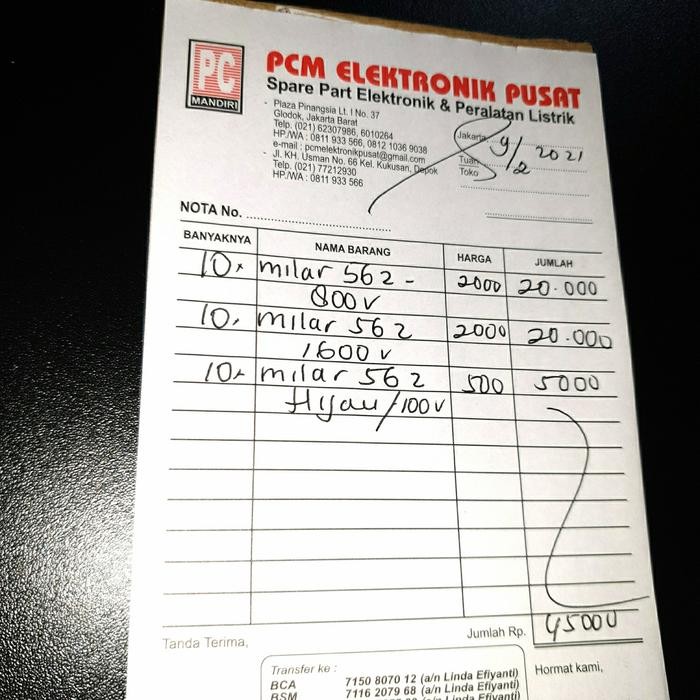 PC
MANDIRI
PCM ELEKTRONIK PUSAT
Spare Part Elektronik & Peralatan Listrik
- Plaza Pinangsia Lt. I No. 37
Glodok, Jakarta Barat
Telp. (021) 62307986, 6010264
HP./WA : 0811 933 566, 0812 1036 9038
e-mail : pcmelektronikpusat@gmail.com
- Jl. KH. Usman No. 66 Kel. Kukusan, Depok
Telp. (021) 77212930
HP./WA : 0811 933 566
Jakarta, 9/2 2021
Tuan
Toko
NOTA No.
BANYAKNYA NAMA BARANG HARGA JUMLAH
10x milar 562 - 2000 20.000
800 v
10, milar 562 2000 20.000
1600 v
10x milar 562 500 5000
Hijau/100v
Jumlah Rp. 45000
Tanda Terima,
Hormat kami,
Transfer ke :
BCA 7150 8070 12 (a/n Linda Efiyanti)
BSM 7116 2079 68 (a/n Linda Efiyanti)